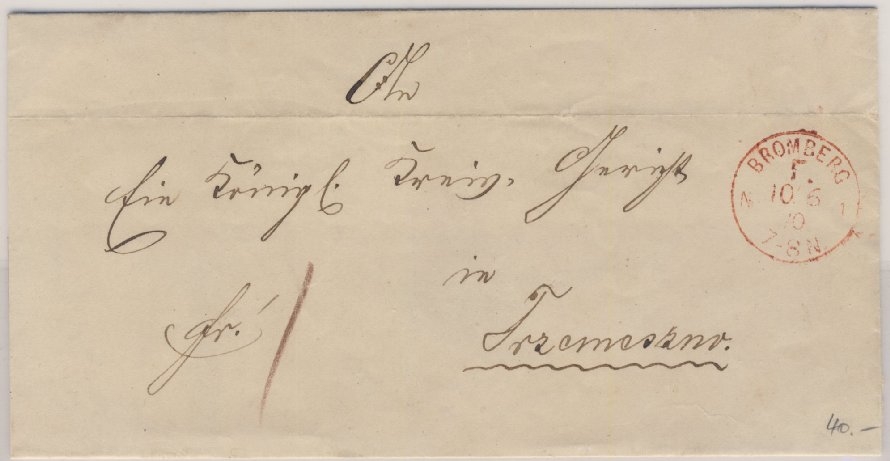 An
Ein Königl. Kreis-Gericht
in
Trzemeszno.
fr.
BROMBERG
F.
10 6
70
7-8 N.
40.-